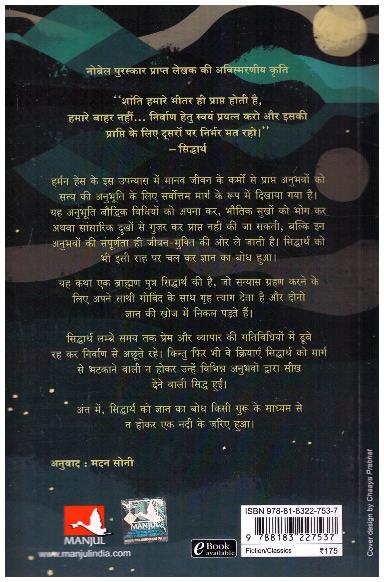 नोबेल पुरस्कार प्राप्त लेखक की अविस्मरणीय कृति
“शांति हमारे भीतर ही प्राप्त होती है,
हमारे बाहर नहीं... निर्वाण हेतु स्वयं प्रयत्न करो और इसकी
प्राप्ति के लिए दूसरों पर निर्भर मत रहो।”
–सिद्धार्थ
हर्मन हेस के इस उपन्यास में मानव जीवन के कर्मों से प्राप्त अनुभवों को
सत्य की अनुभूति के लिए सर्वोत्तम मार्ग के रूप में दिखाया गया है।
यह अनुभूति बौद्धिक विधियों को अपना कर, भौतिक सुखों को भोग कर
अथवा सांसारिक दुखों से गुज़र कर प्राप्त नहीं की जा सकती, बल्कि इन
अनुभवों की संपूर्णता ही जीवन-मुक्ति की ओर ले जाती है। सिद्धार्थ को
भी इसी राह पर चल कर ज्ञान का बोध हुआ।
यह कथा एक ब्राह्मण पुत्र सिद्धार्थ की है, जो सन्यास ग्रहण करने के
लिए अपने साथी गोविंद के साथ गृह त्याग देता है और दोनों
ज्ञान की खोज में निकल पड़ते हैं।
सिद्धार्थ लम्बे समय तक प्रेम और व्यापार की गतिविधियों में डूबे
रह कर निर्वाण से अछूते रहे। किन्तु फिर भी वे क्रियाएं सिद्धार्थ को मार्ग
से भटकाने वाली न होकर उन्हें विभिन्न अनुभवों द्वारा सीख
देने वाली सिद्ध हुई।
अंत में, सिद्धार्थ को ज्ञान का बोध किसी गुरू के माध्यम से
न होकर एक नदी के ज़रिए हुआ।
अनुवाद : मदन सोनी
MANJUL
www.manjulindia.com
MANJUL
eBook
available
ISBN 978-81-8322-753-7
9 788183 227537
Fiction/Classics ₹175
Cover design by Chaaya Prabhat